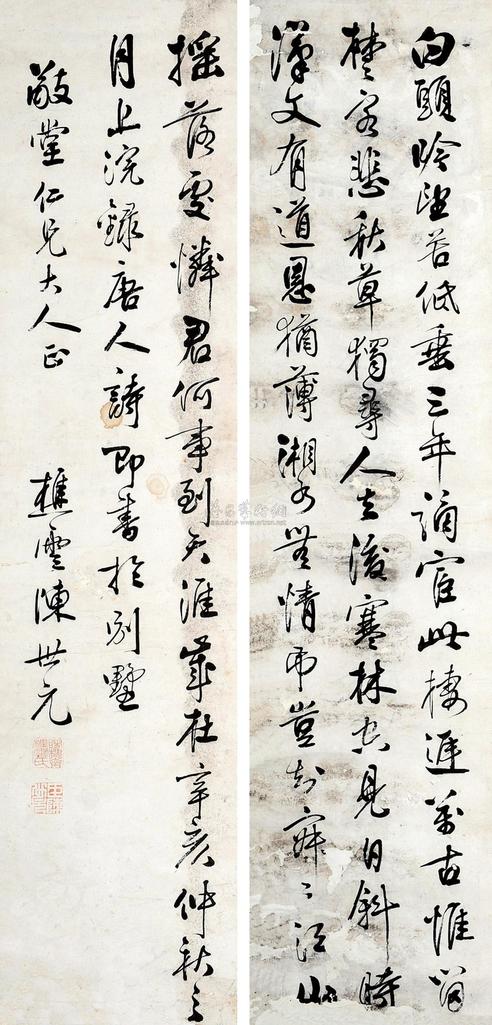 白頭吟望苦低垂三年謫宦此棲遲萬古惟留
楚客悲秋草獨尋人去後寒林空見日斜時
漢文有道恩猶薄湘水無情弔豈知寂〻江山
搖落處憐君何事到天涯歲在辛亥仲秋之
月上浣錄唐人詩即書於別墅
敬堂仁兄大人正
樵雲陳世元